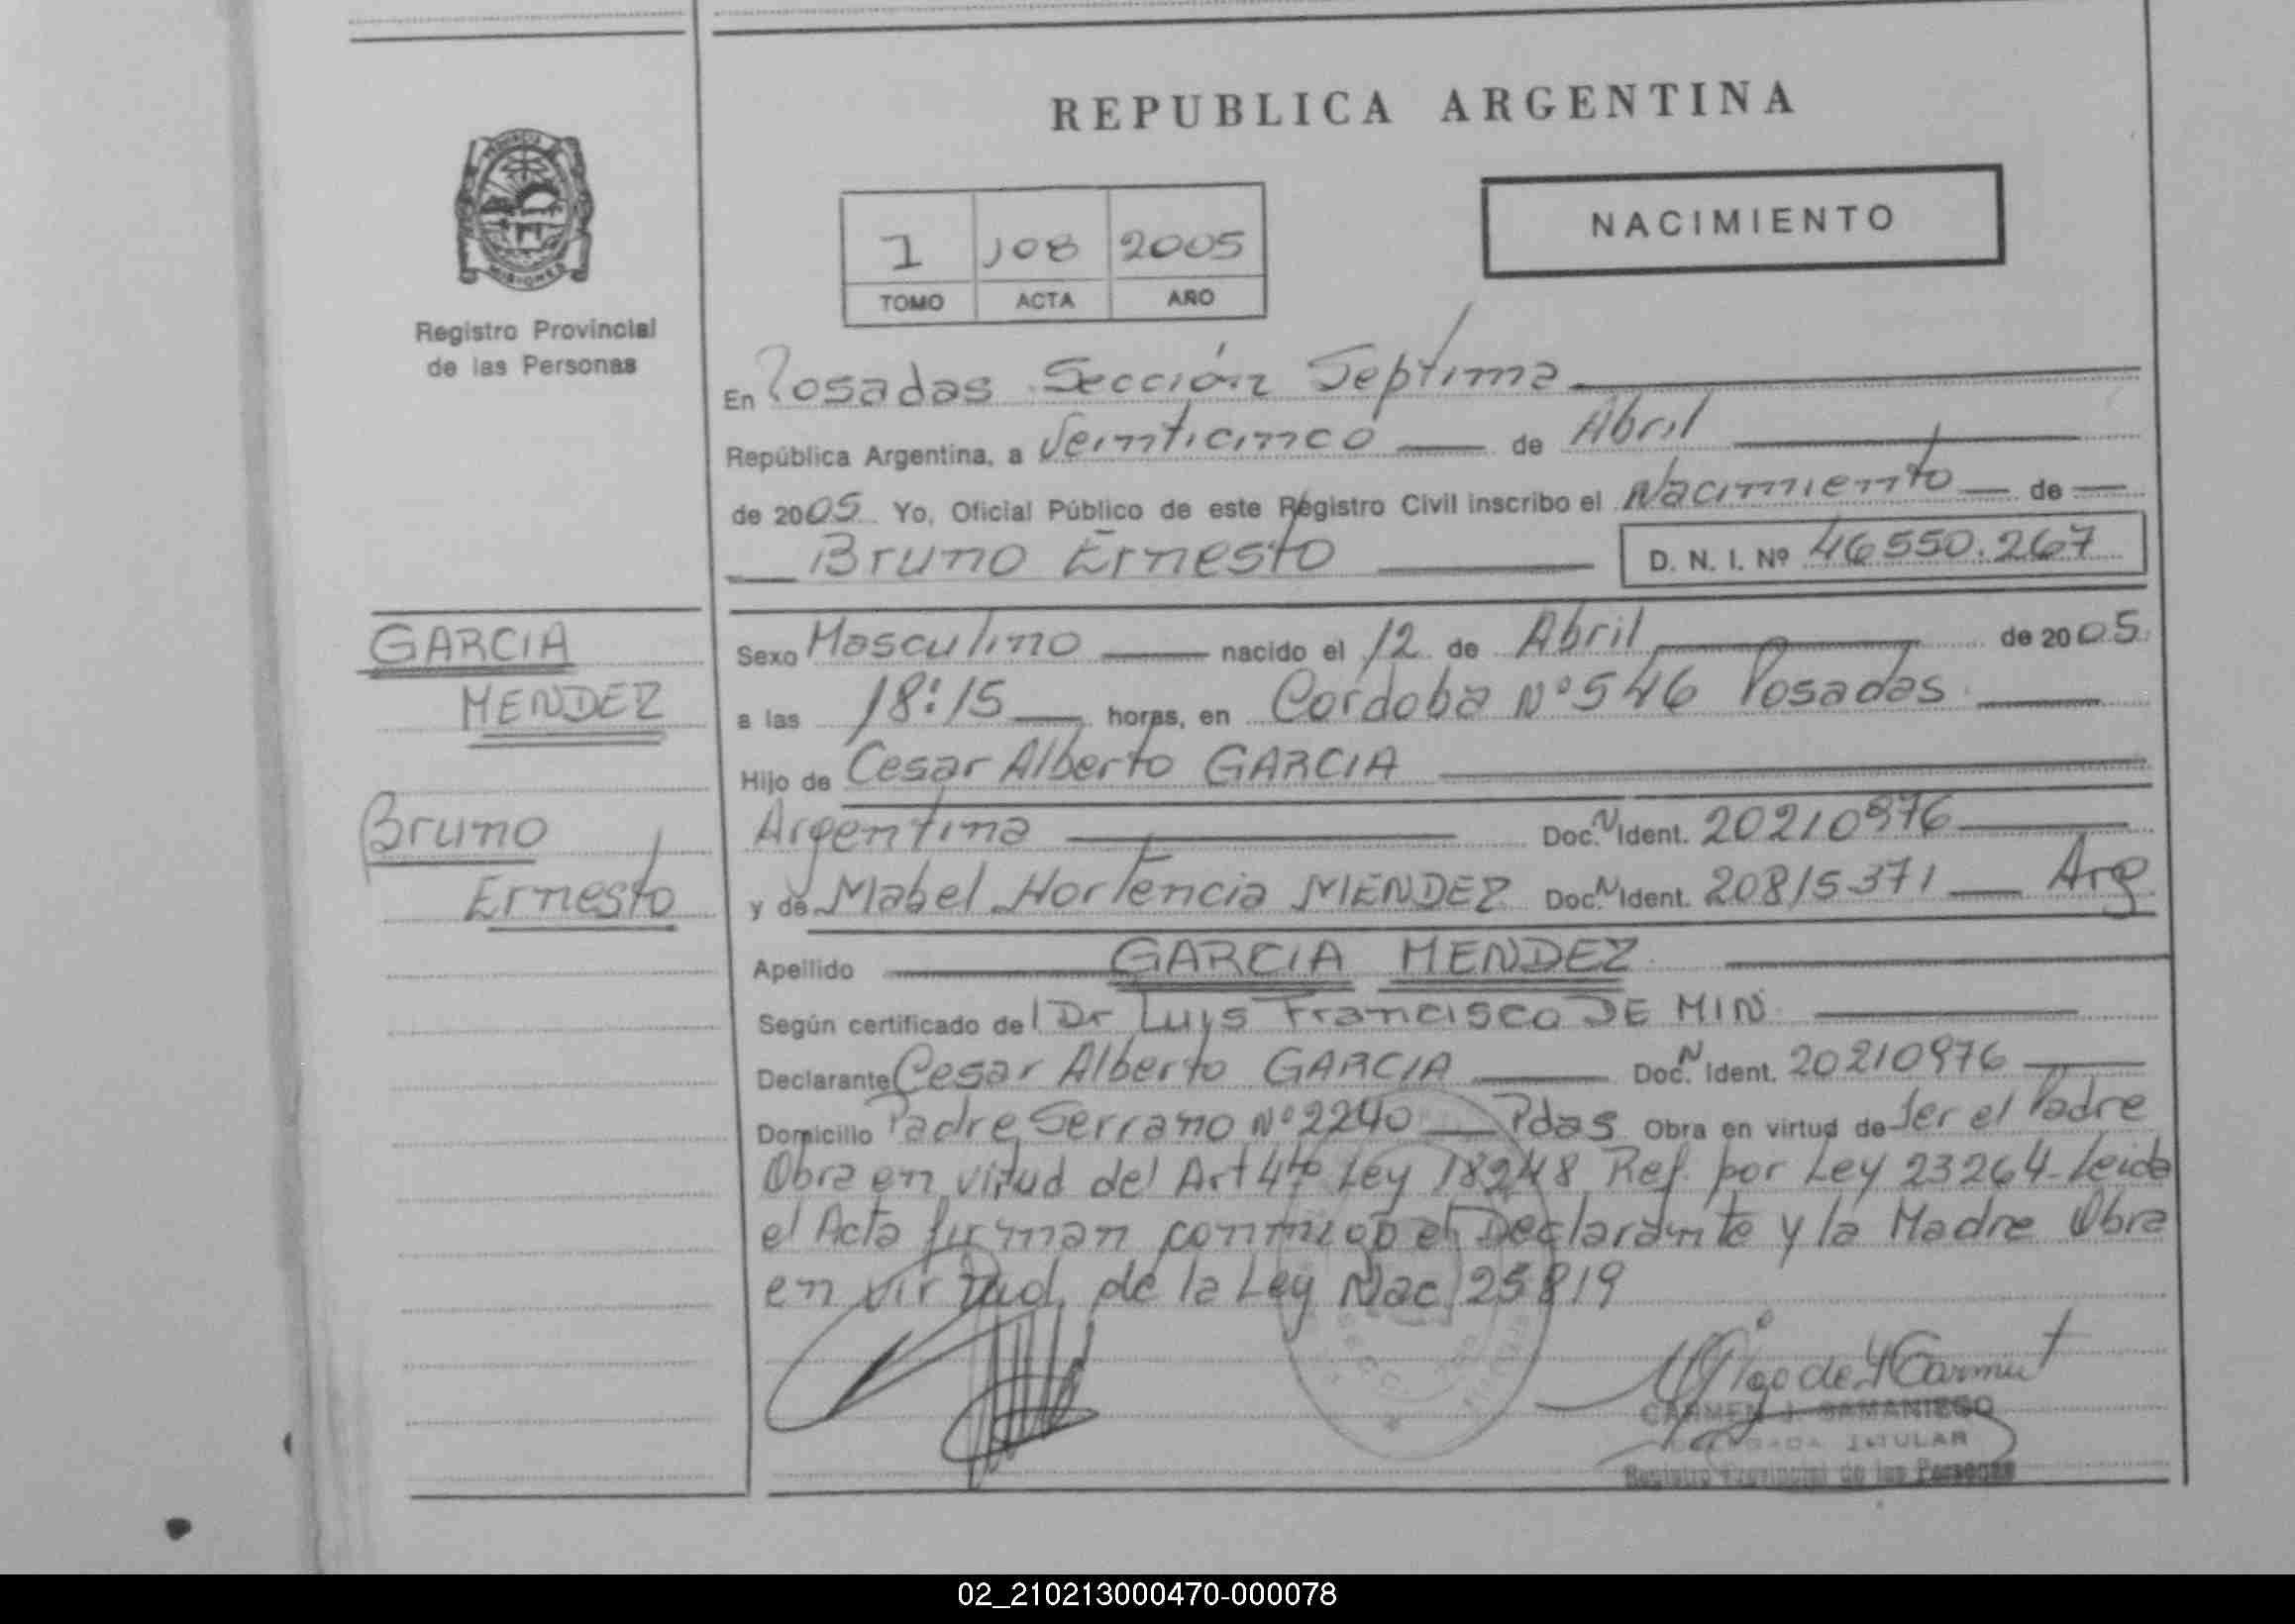 REPUBLICA ARGENTINA
NACIMIENTO
1 108 2005
TOMO ACTA AÑO
PROVINCIA DE
MISIONES
Registro Provincial
de las Personas
En Posadas Sección Septima
República Argentina, a Veinticinco de Abril
de 2005 Yo, Oficial Público de este Registro Civil inscribo el Nacimiento de
Bruno Ernesto D. N. I. Nº 46550.267
GARCIA
MENDEZ
Bruno
Ernesto
Sexo Masculino nacido el 12 de Abril de 2005
a las 18:15 horas, en Cordoba Nº 546 Posadas
Hijo de Cesar Alberto GARCIA
Argentina Doc. N Ident. 20210976
y de Mabel Hortencia MENDEZ Doc. N Ident. 20815371 Arg
Apellido GARCIA MENDEZ
Según certificado del Dr Luis Francisco DE MIN
Declarante Cesar Alberto GARCIA Doc. N Ident. 20210976
Domicilio Padre Serrano Nº 2240 Pdas Obra en virtud de Ser el Padre
Obra en vitud del Art 4to Ley 18248 Ref. por Ley 23264-Leida
el Acta firman conmigo el Declarante y la Madre Obra
en virtud de la Ley Nac 25819
CARMEN J. SAMANIEGO
DELEGADA TITULAR
Registro Provincial de las Personas
02_210213000470-000078